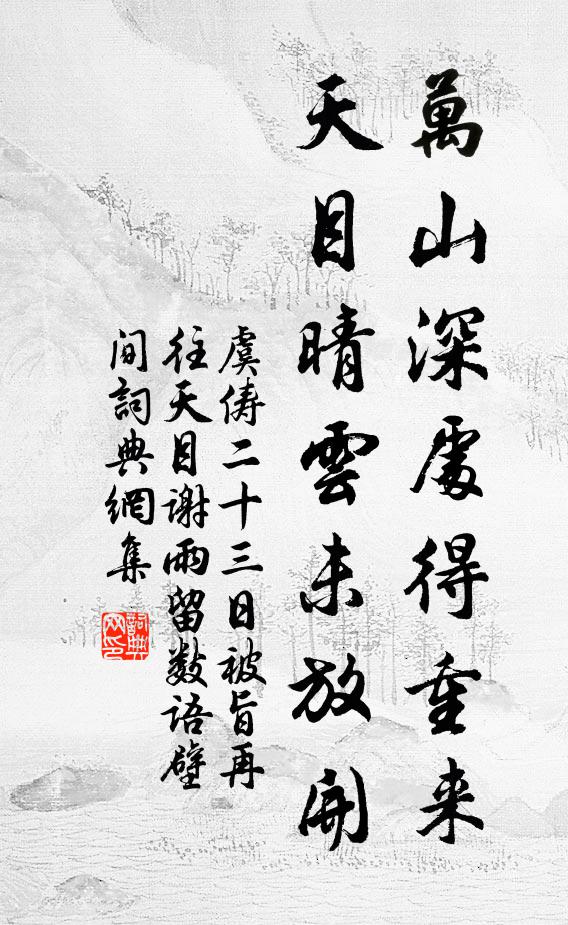 萬山深處得重来
天目晴雲未放開
虞儔二十三日被旨再
往天目謝雨留数语壁
间詞典網集
詞典
网印